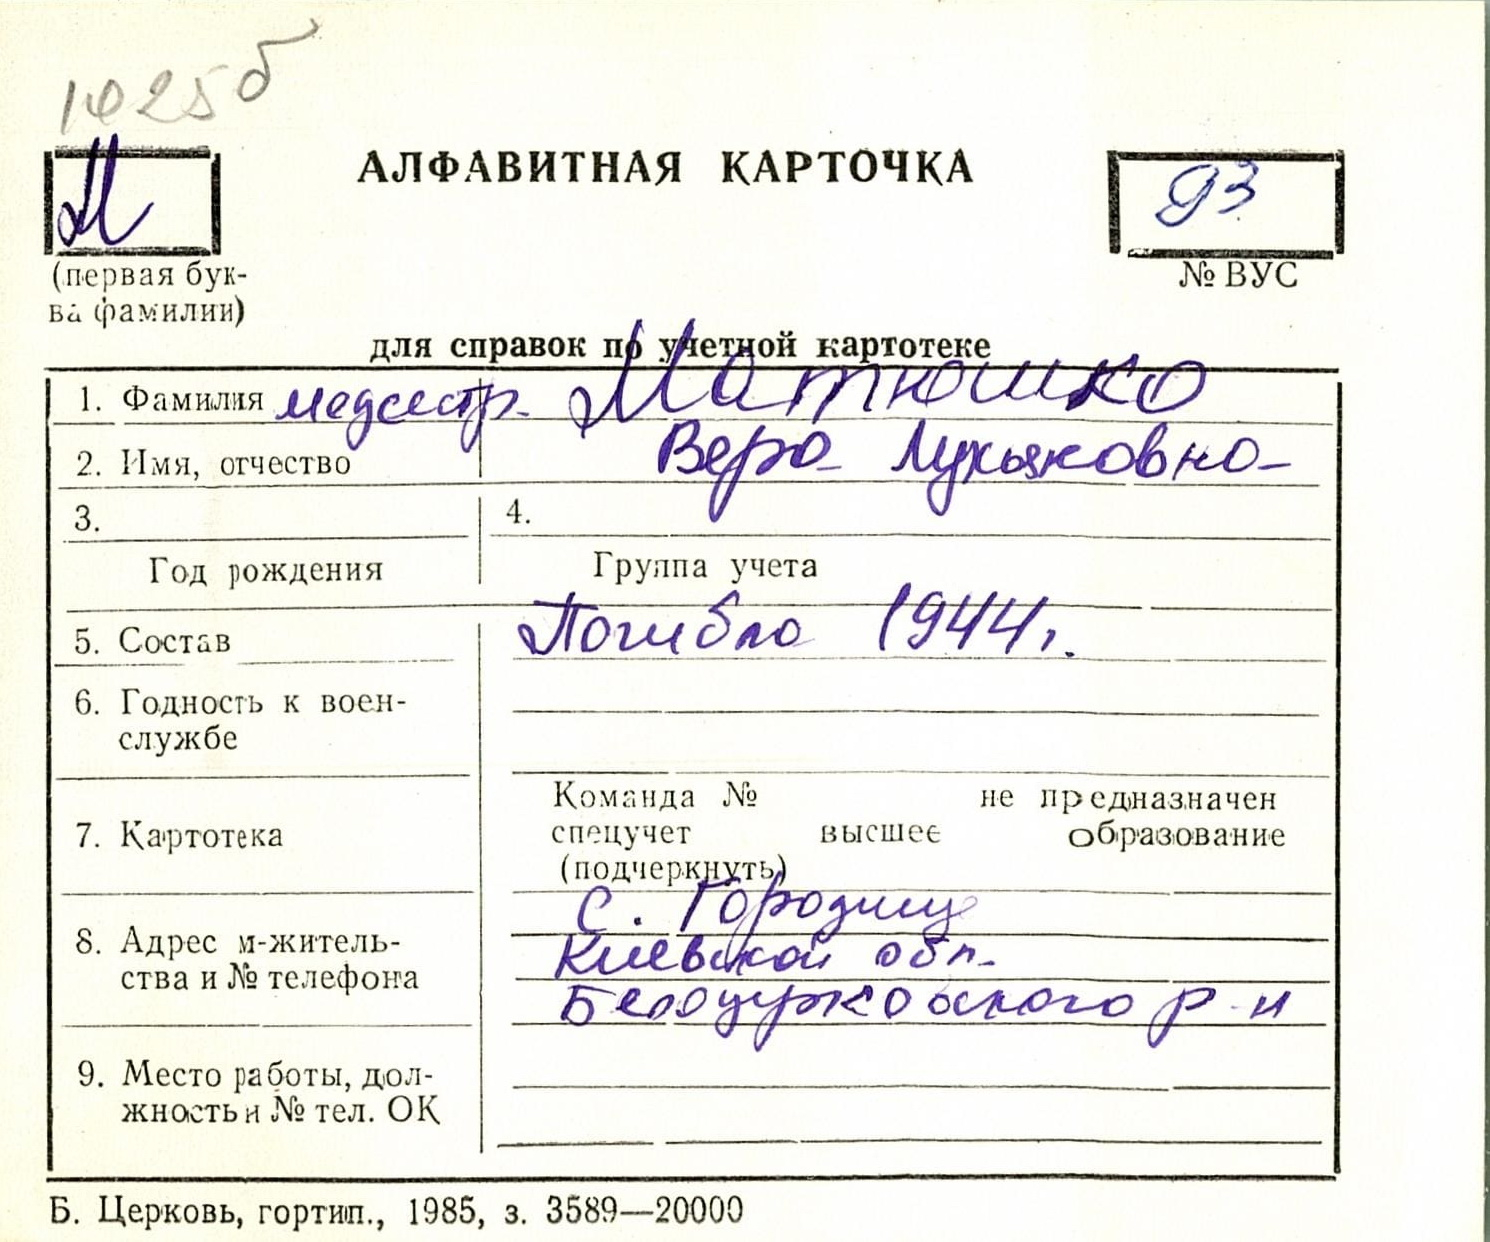 1025б
М
АЛФАВИТНАЯ КАРТОЧКА
93
(первая бук-
ва фамилии)
№ ВУС
для справок по учетной картотеке
1. Фамилия медсестр. Матюшко
2. Имя, отчество Вера Лукьяновна
3.
4.
Год рождения
Группа учета
5. Состав
Погибла 1944г.
6. Годность к воен-
службе
7. Картотека
Команда № не предназначен
спецучет высшее образование
(подчеркнуть)
8. Адрес м-житель-
ства и № телефона
с. Городище
Киевской обл.
Белоцерковского р-н
9. Место работы, дол-
жность и № тел. ОК
Б. Церковь, гортип., 1985, з. 3589—20000